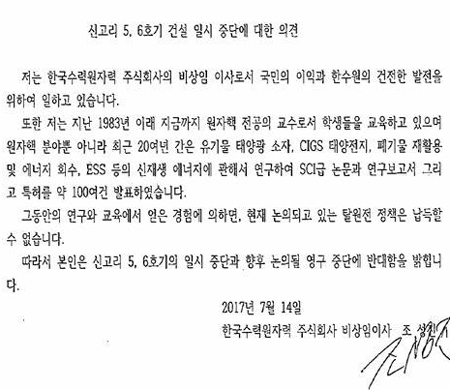 신고리 5, 6호기 건설 일시 중단에 대한 의견
저는 한국수력원자력 주식회사의 비상임 이사로서 국민의 이익과 한수원의 건전한 발전을
위하여 일하고 있습니다.
또한 저는 지난 1983년 이래 지금까지 원자핵 전공의 교수로서 학생들을 교육하고 있으며
원자핵 분야뿐 아니라 최근 20여년 간은 유기물 태양광 소자, CIGS 태양전지, 폐기물 재활용
및 에너지 회수, ESS 등의 신재생 에너지에 관해서 연구하여 SCI급 논문과 연구보고서 그리
고 특허를 약 100여건 발표하였습니다.
그동안의 연구와 교육에서 얻은 경험에 의하면, 현재 논의되고 있는 탈원전 정책은 납득할
수 없습니다.
따라서 본인은 신고리 5, 6호기의 일시 중단과 향후 논의될 영구 중단에 반대함을 밝힙니
다.
2017년 7월 14일
한국수력원자력 주식회사 비상임이사 조 성진